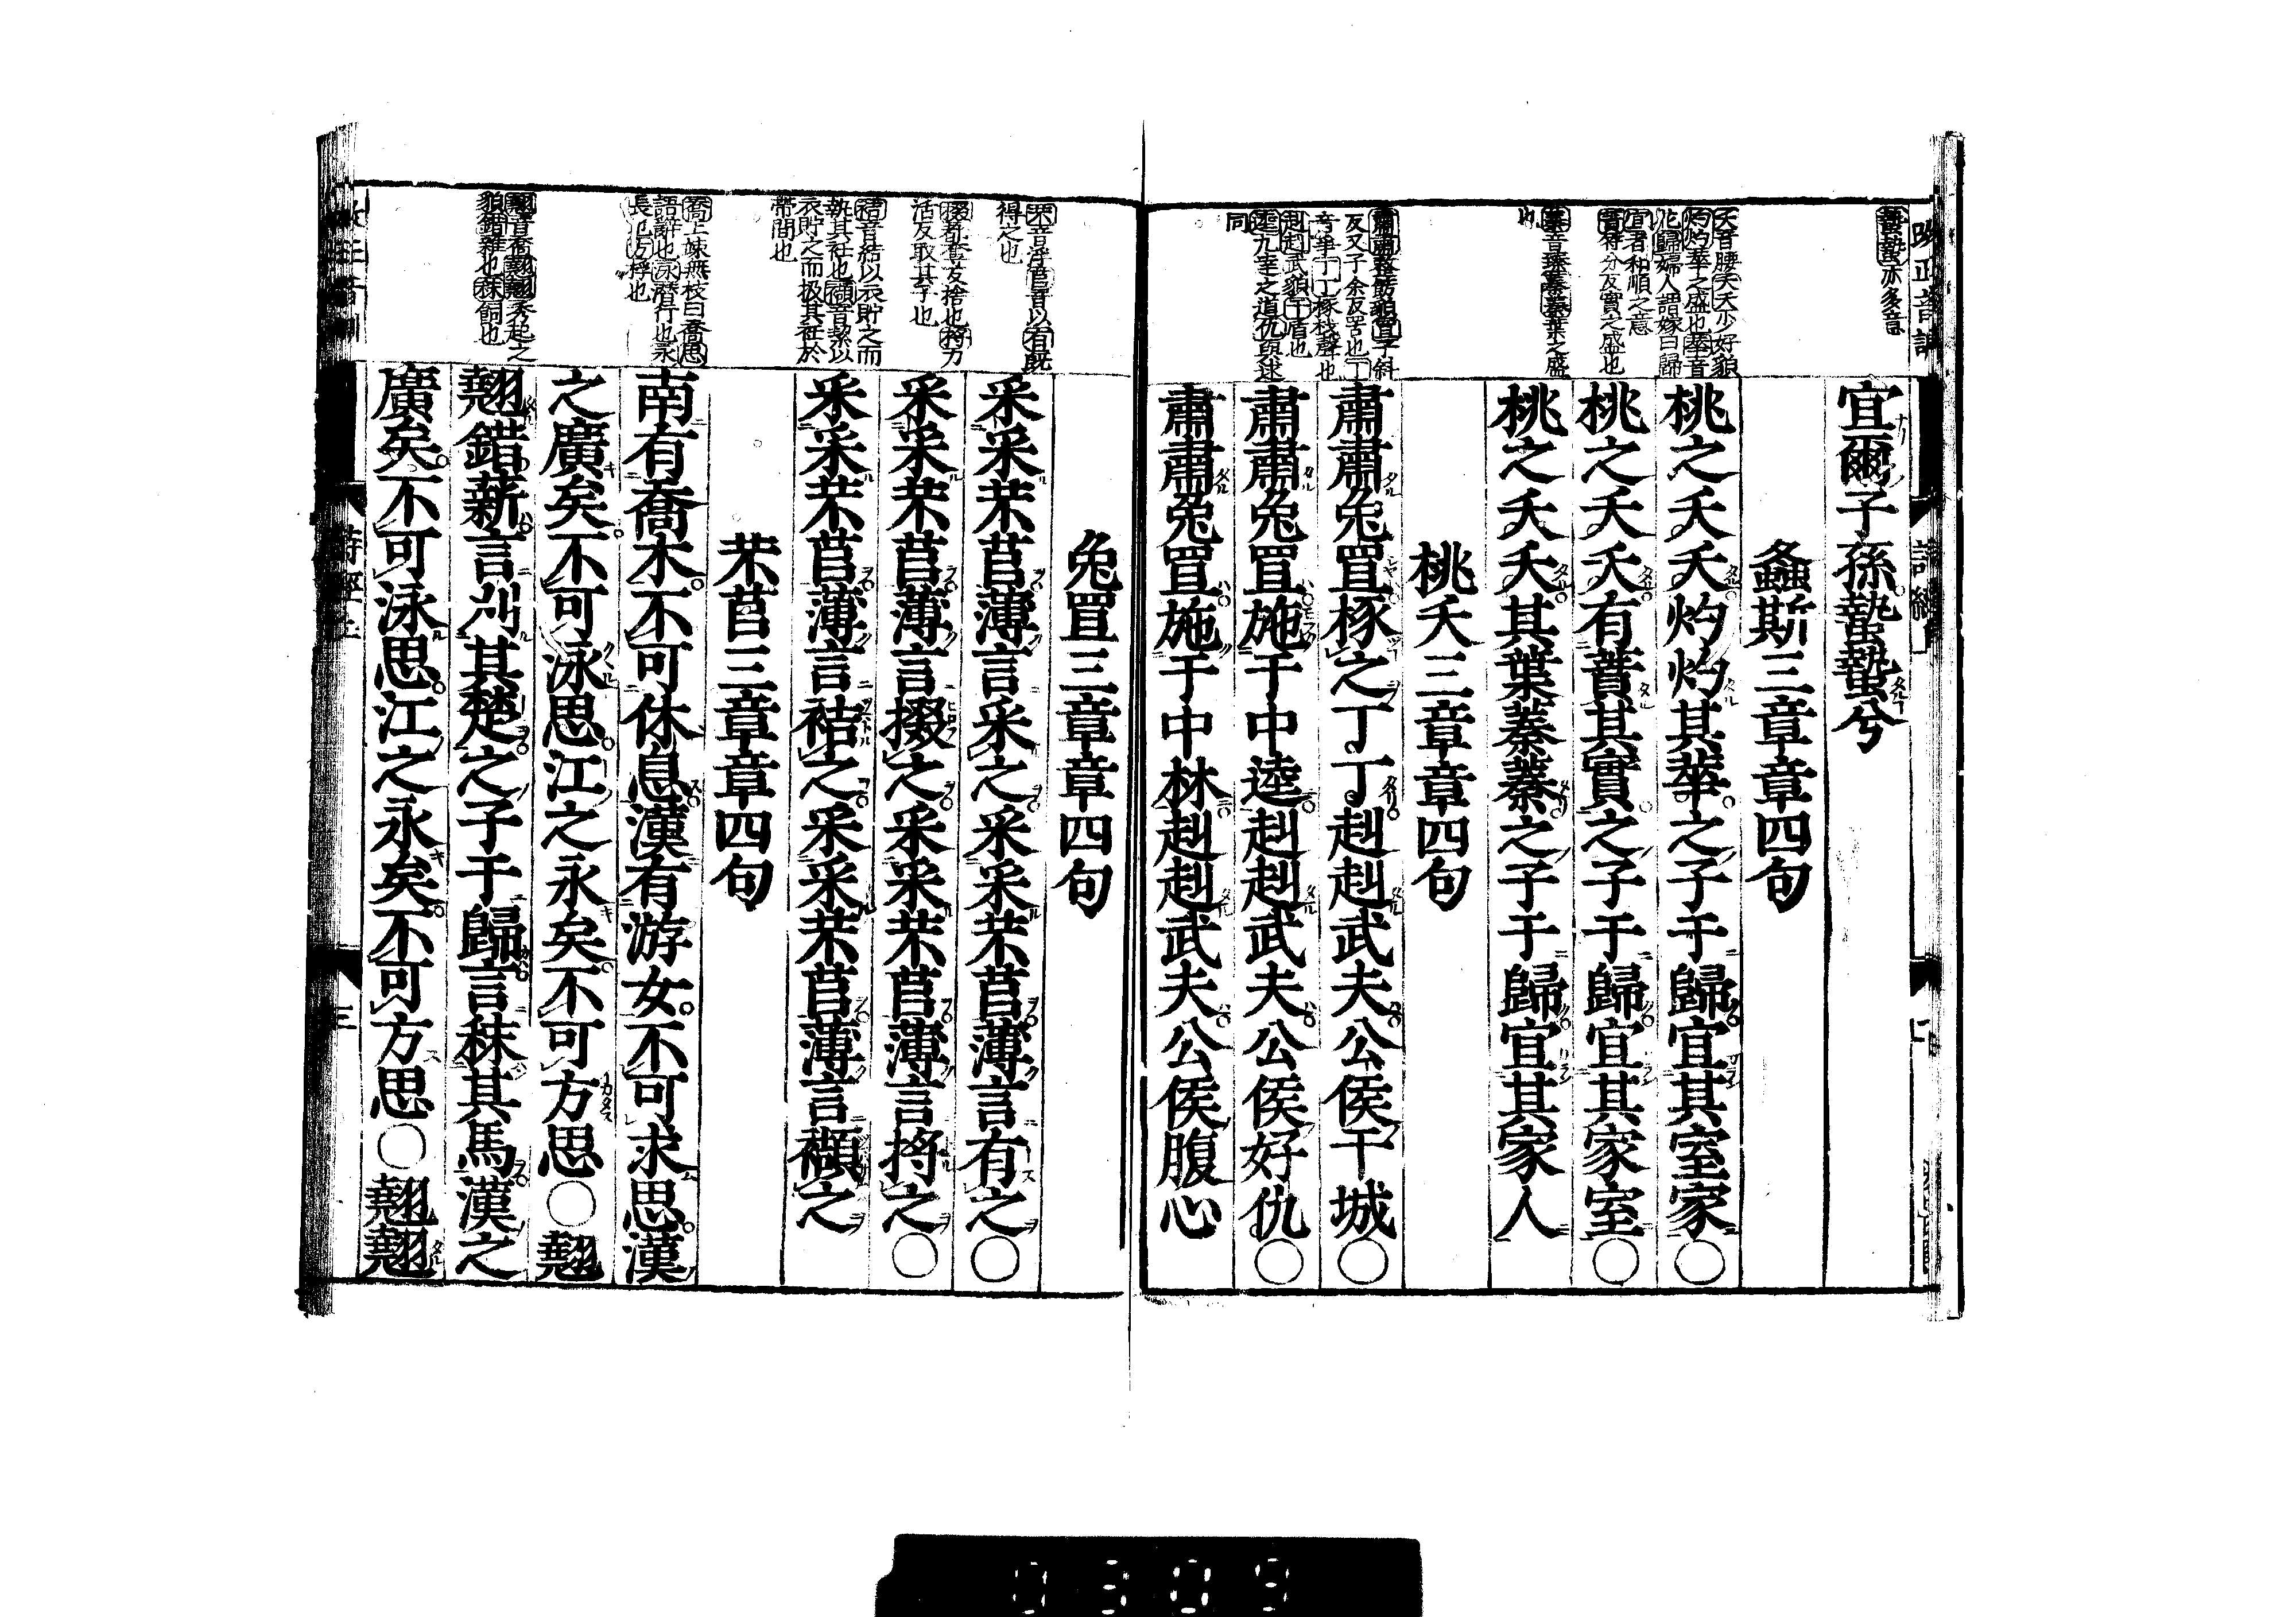 蟄蟄亦多意
夭音腰夭夭少好貌
灼灼華之盛也華音
花歸婦人謂嫁曰歸
宜者和順之意
蕡符分反實之盛也
蓁音臻蓁蓁葉之盛
也
肅肅整飭貌罝子斜
反又子余反罟也丁
音爭丁丁椓杙聲也
赳赳武貌干盾也
逵九達之道仇與逑
同
宜爾子孫蟄蟄兮
螽斯三章章四句
桃之夭夭灼灼其華之子于歸宜其室家○
桃之夭夭有蕡其實之子于歸宜其家室○
桃之夭夭其葉蓁蓁之子于歸宜其家人
桃夭三章章四句
肅肅兔罝椓之丁丁赳赳武夫公侯干城○
肅肅兔罝施于中逵赳赳武夫公侯好仇○
肅肅兔罝施于中林赳赳武夫公侯腹心
芣音浮苢音以有既
得之也
掇都奪反捨也捋力
活反取其子也
袺音結以衣貯之而
執其衽也襭音絜以
衣貯之而扱其衽於
帶間也
喬上竦無枝曰喬思
語辭也泳潛行也永
長也方桴也
翹音喬翹翹秀起之
貌錯雜也秣飼也
兔罝三章章四句
采采芣苢薄言采之采采芣苢薄言有之○
采采芣苢薄言掇之采采芣苢薄言捋之○
采采芣苢薄言袺之采采芣苢薄言襭之
芣苢三章章四句
南有喬木不可休息漢有游女不可求思漢
之廣矣不可泳思江之永矣不可方思○翹
翹錯薪言刈其楚之子于歸言秣其馬漢之
廣矣不可泳思江之永矣不可方思○翹翹
詩經上
三
0309